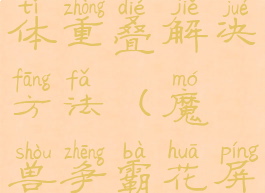 tǐ zhòng dié jiě jué
体重叠解决
fāng fǎ mó
方法（魔
shòu zhēng bà huā píng
兽争霸花屏